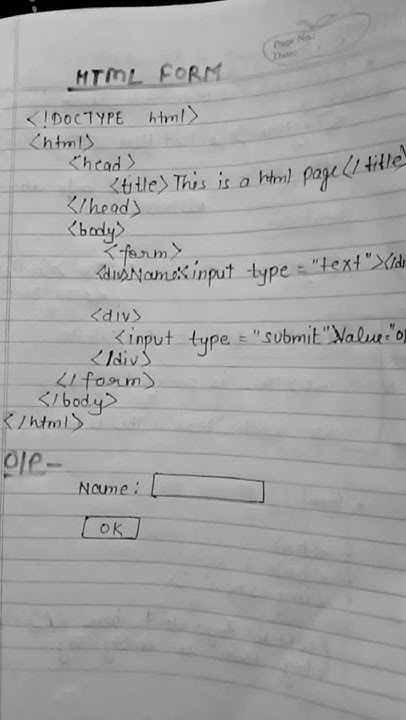 Page No.:
Date:
HTML FORM
<!DOCTYPE html>
<html>
<head>
<title> This is a html page</title>
</head>
<body>
<form>
<div>Name:<input type = "text"></di
<div>
<input type = "submit" Value="o
</div>
</form>
</body>
</html>
O/P -
Name:
OK